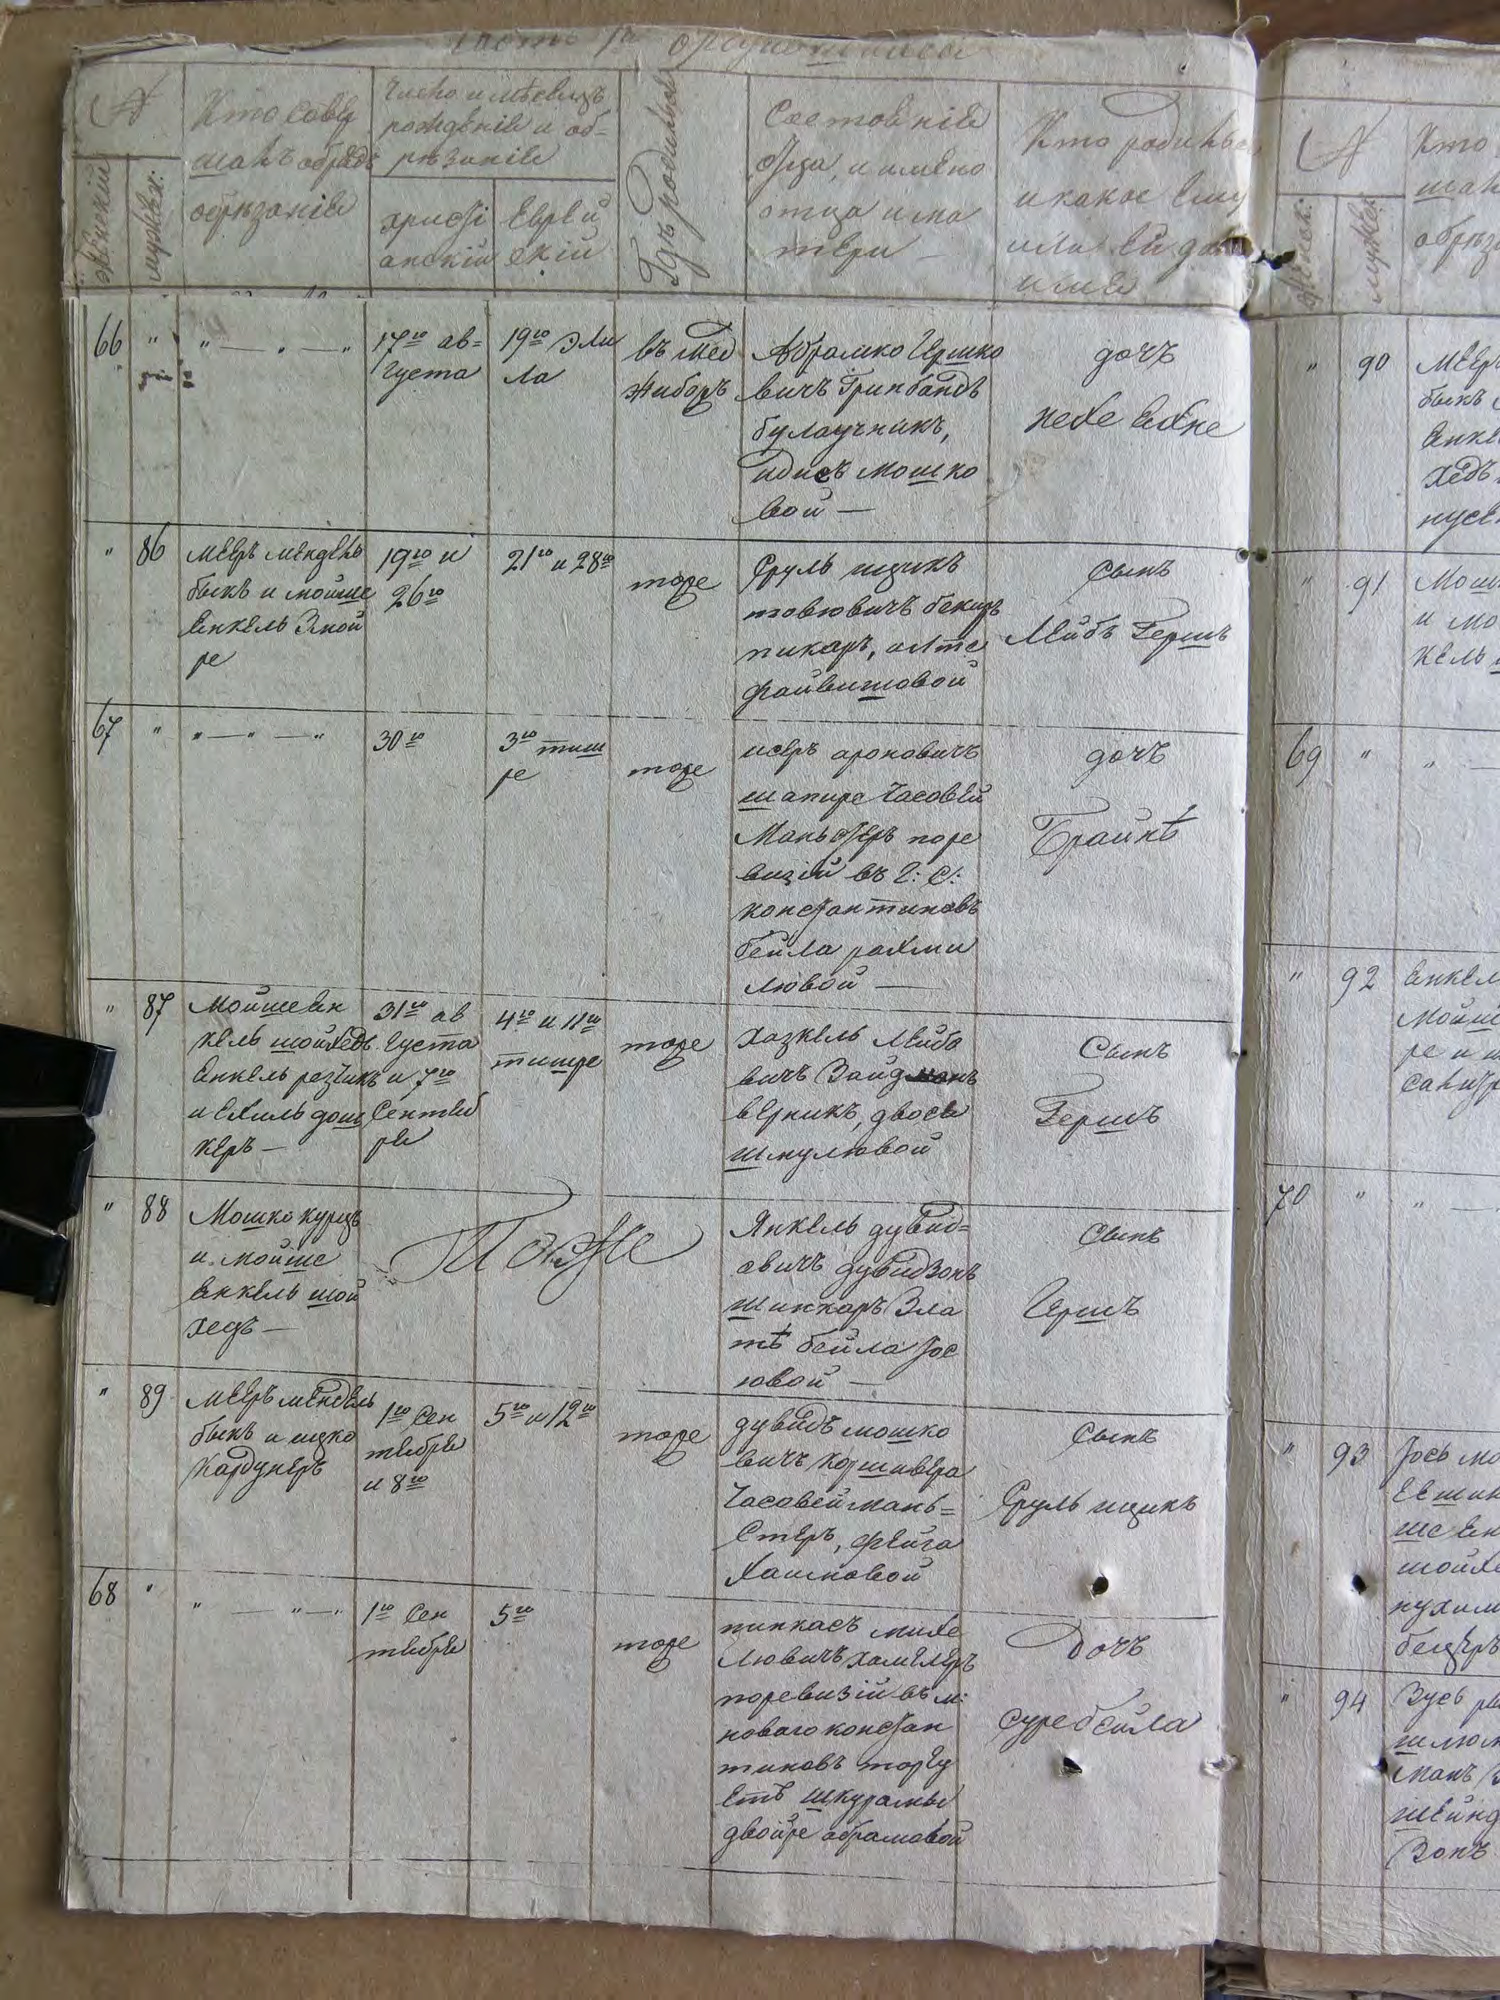 Часть 1я о родившихся
№
женскій
мужеск:
Кто совер
шалъ обрядъ
обрѣзанія
Число и мѣсяцъ
рожденія и об=
рѣзанія
христі
анскій
Еврей
скій
Гдѣ родился
Состояніе
отца, и имена
отца и ма
тери
Кто родился
и какое ему
или ей дано
имя
66
17го ав=
густа
19го Элу
ла
въ Мед
жиборъ
Абрамко Гершко
вичъ Гринбандъ
булаучникъ,
идись Мошко
вой —
дочъ
Нехе Ехне
86
Мееръ Мендель
быкъ и Мойше
Енкель Зной
ре
19го и
26го
21го и 28го
тоже
Сруль ицикъ
товіовичъ бекеръ
пикаръ, алте
файвишовой
Сынъ
Лейбъ Гершъ
67
30го
3го тиш
ре
тоже
исеръ ароновичъ
шапире часовей
Маньстеръ поре
визіи въ г: С:
константиновъ
бейла рахми
лювой —
дочъ
Брайнѣ
87
Мойше Ен
кель шойхедъ
Енкель резникъ
и Ехиль дош
керъ —
31го ав
густа
и 7го
Сентяб
ря
4го и 11го
тишре
тоже
Хазкель Лейбо
вичъ Вайдманъ
верникъ, двося
шмулювой
Сынъ
Гершъ
88
Мошко куръ
и Мойше
Енкель шой
хедъ —
Тоже
Янкель дувид=
овичъ дувидзонъ
шинкаръ Зла
тѣ бейла Іос
ювой —
Сынъ
Гершъ
89
Мееръ Мендель
быкъ и ицко
Кардунеръ
1го Сен
тября
и 8го
5го и 12го
тоже
дувидъ мошко
вичъ Коршивера
часовей мань=
стеръ, фейга
Хаимовой
Сынъ
Сруль ицикъ
68
1го Сен
тября
5го
тоже
пинкасъ михе
лювичъ хамелеръ
поревизіи въ м:
новаго констан
тиновъ торгу
етъ шкурамы
двойре абрамовой
Дочъ
суре бейла
№
мужеск:
Кто
обрѣз
90
Мееръ
быкъ
Енкел
хедъ
91
Мош
и мо
кель
69
92
Енкел
Мойш
ре и
70
93
Іось мо
ше Ен
шойхе
94
Зусь
шлюм
манъ
шейнд
Зонъ